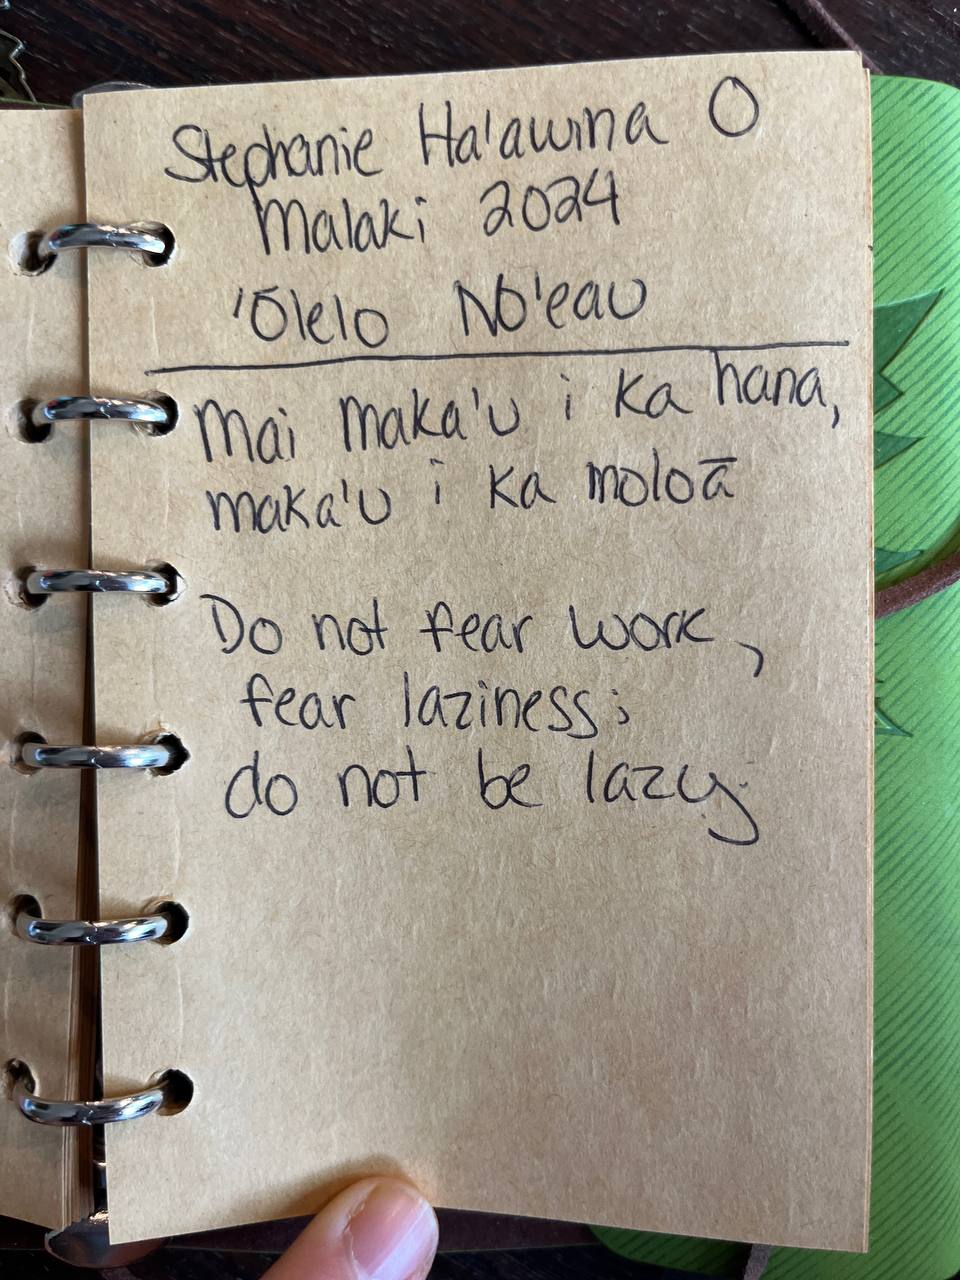 Stephanie Ha'awina O
Malaki 2024
'Ōlelo No'eau
Mai maka'u i ka hana,
maka'u i ka moloā
Do not fear work,
fear laziness;
do not be lazy.